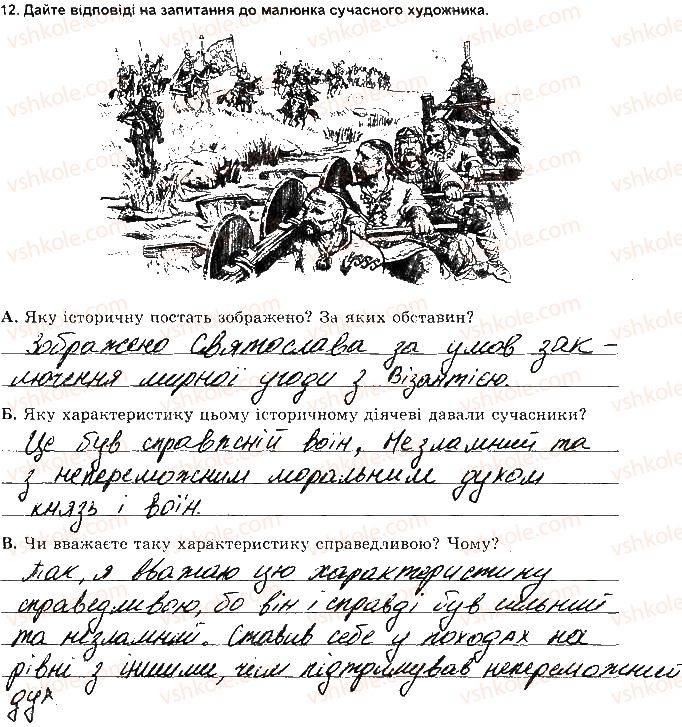 12. Дайте відповіді на запитання до малюнка сучасного художника.
А. Яку історичну постать зображено? За яких обставин?
Зображено Святослава за умов зак –
лючення мирної угоди з Візантією.
Б. Яку характеристику цьому історичному діячеві давали сучасники?
Це був справжній воїн, Незламний та
з непереможним моральним духом
князь і воїн.
В. Чи вважаєте таку характеристику справедливою? Чому?
Так, я вважаю цю характеристику
справедливою, бо він і справді був сильний
та незламний. Ставив себе у походах на
рівні з іншими, чим підтримував непереможний
дух
vshkole.com